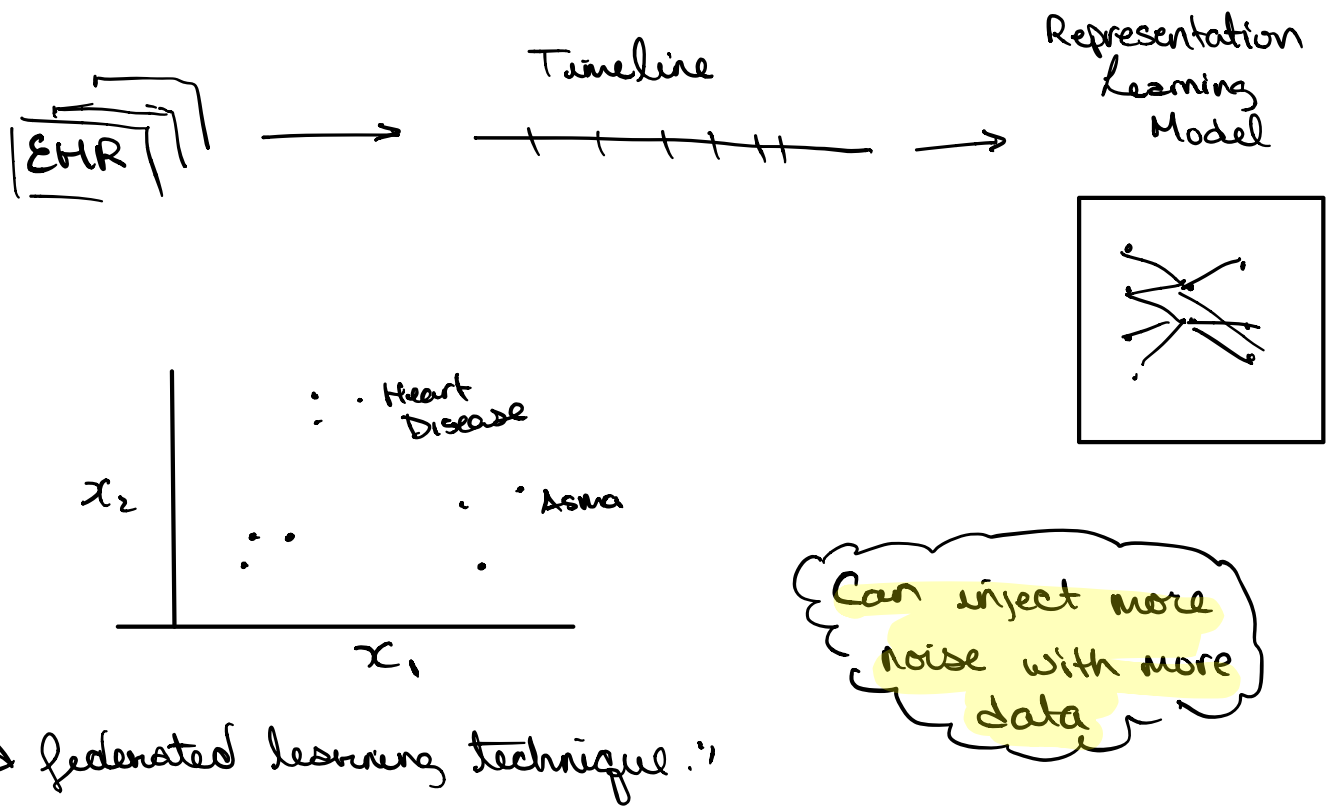 EHR
Timeline
Representation
Learning
Model
Heart
Disease
x₂
Asma
x₁
Can inject more
noise with more
data
federated learning technique."